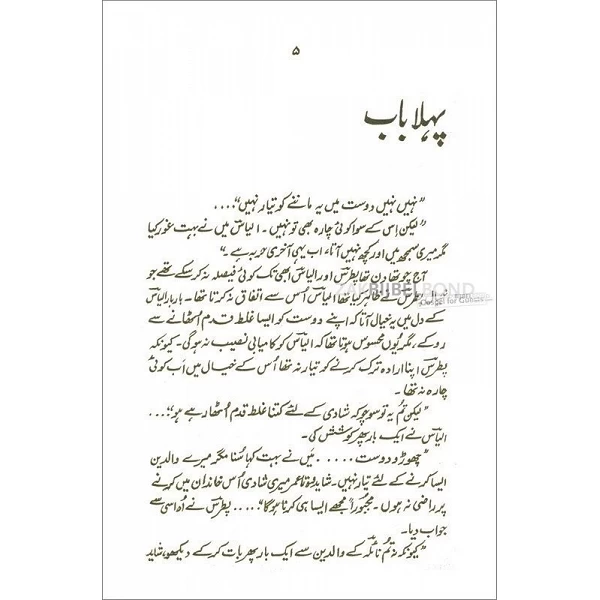 ۵
پہلا باب
"نہیں نہیں دوست میں یہ ماننے کو تیار نہیں"....
"لیکن اِس کے سوا کوئی چارہ بھی تو نہیں۔ الیاس میں نے بہت غور کیا
مگر میری سمجھ میں اور کچھ نہیں آتا، اب یہی آخری حربہ ہے۔"
آج چوتھا دن تھا پطرس اور الیاس ابھی تک کوئی فیصلہ نہ کر سکے تھے جو
پطرس نے ظاہر کیا تھا الیاس اُس سے اتفاق نہ کرتا تھا۔ بار بار الیاس
کے دل میں یہ خیال آتا کہ اپنے دوست کو ایسا غلط قدم اُٹھانے سے
روکے، مگر یُوں محسوس ہوتا تھا کہ الیاس کو کامیابی نصیب نہ ہوگی۔ کیونکہ
پطرس اپنا ارادہ ترک کرنے کو تیار نہ تھا اُس کے خیال میں اَب کوئی
چارہ نہ تھا۔
"لیکن تُم یہ تو سوچو کہ شادی کے لئے کتنا غلط قدم اُٹھا رہے ہو"....
الیاس نے ایک بار پھر کوشش کی۔
"چھوڑو دوست ..... میں نے بہت کہا سُنا مگر میرے والدین
ایسا کرنے کے لئے تیار نہیں۔ شاید وُہ تا عمر میری شادی اُس خاندان میں کرنے
پر راضی نہ ہوں۔ مجبوراً مجھے ایسا ہی کرنا ہوگا"..... پطرس نے اُداسی سے
جواب دیا۔
"کیونکہ نہ تُم نائلہ کے والدین سے ایک بار پھر بات کر کے دیکھو، شاید
BIJBELBOND